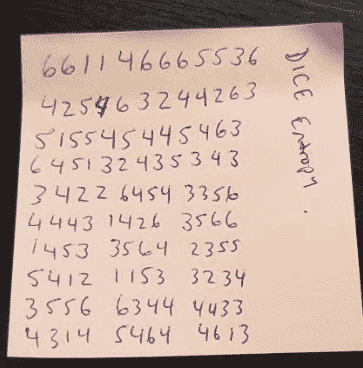 661146665536
425463244263
515545445463
645132435343
3422 6454 3356
4443 1426 3566
1453 3564 2355
5412 1153 3234
3556 6344 4433
4314 5464 4613
DICE Entropy.